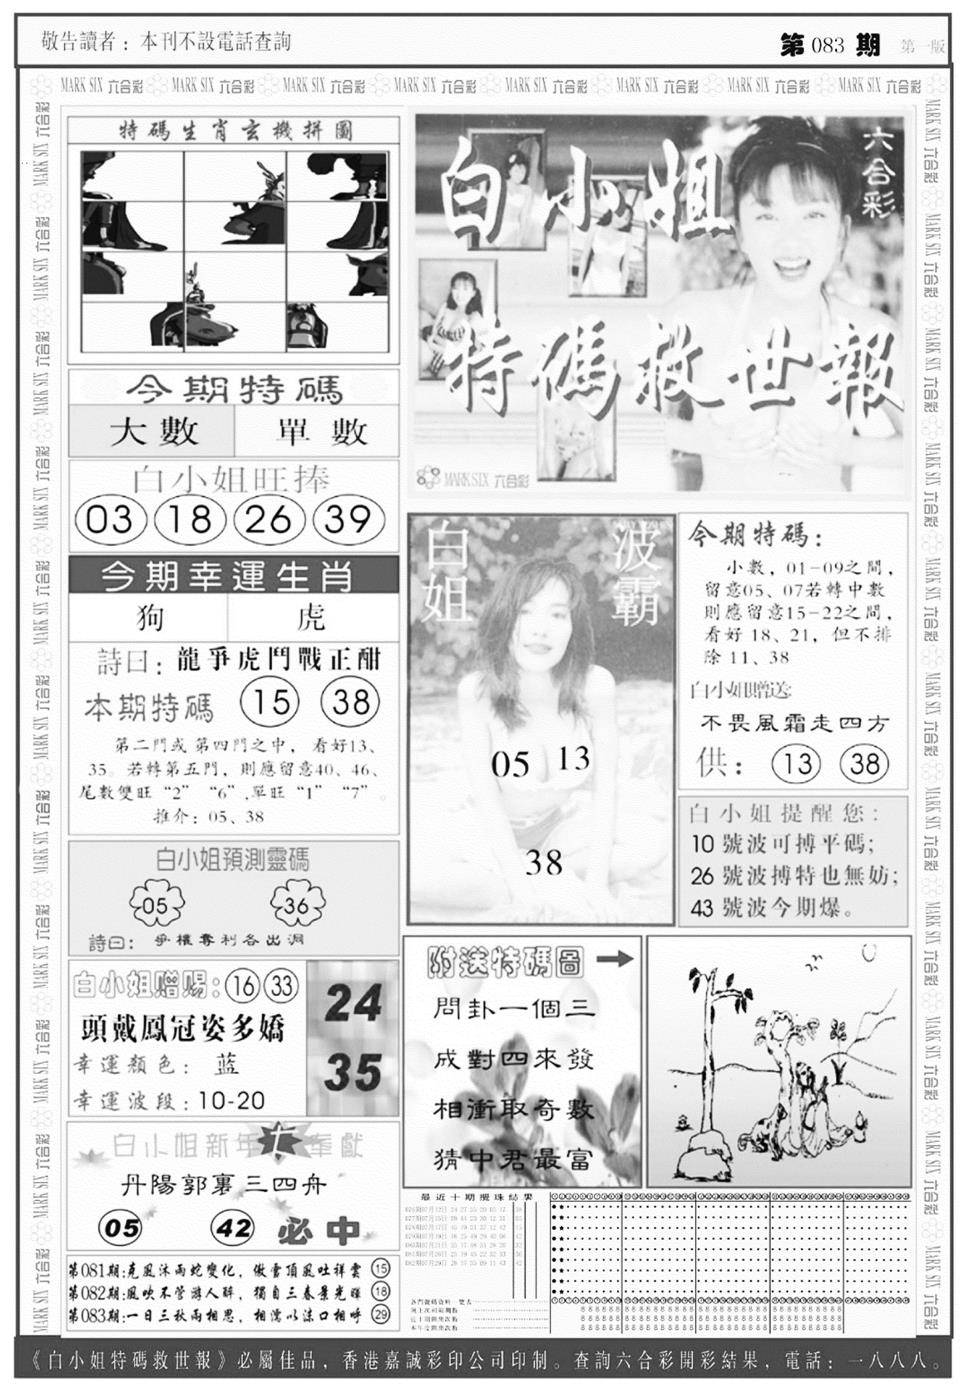 敬告讀者：本刊不設電話查詢
第 083 期 第一版
MARK SIX 六合彩 MARK SIX 六合彩 MARK SIX 六合彩 MARK SIX 六合彩 MARK SIX 六合彩 MARK SIX 六合彩 MARK SIX 六合彩 MARK SIX 六合彩
特碼生肖玄機拼圖
六合彩
白小姐
特碼救世報
MARK SIX 六合彩
今期特碼
大數 單數
白小姐旺捧
03 18 26 39
今期幸運生肖
狗 虎
詩曰：龍爭虎鬥戰正酣
本期特碼 15 38
第二門或第四門之中，看好13、
35。若轉第五門，則應留意40、46、
尾數雙旺“2” “6”,單旺“1” “7”。
推介：05、38
白小姐預測靈碼
05 36
詩曰：爭權奪利各出洞
白小姐贈賜：16 33
頭戴鳳冠姿多嬌
幸運顏色：蓝
幸運波段：10-20
24
35
白小姐新年七奉獻
丹陽郭裏三四舟
05 42 必中
第081期:克風沐雨蛇變化，傲雪頂風吐祥雲 15
第082期:風吹不管游人醉，獨自三春景光輝 18
第083期:一日三秋兩相思，相濡以沫口相呼 29
白姐 波霸
05 13
38
今期特碼：
小數，01-09之間，
留意05、07若轉中數
則應留意15-22之間，
看好 18、21，但不排
除 11、38
白小姐贈送:
不畏風霜走四方
供：13 38
白小姐提醒您：
10 號波可搏平碼；
26 號波搏特也無妨；
43 號波今期爆。
附送特碼圖
問卦一個三
成對四來發
相衝取奇數
猜中君最富
最近十期攪珠結果
《白小姐特碼救世報》必屬佳品，香港嘉誠彩印公司印制。查詢六合彩開彩結果，電話：一八八八。